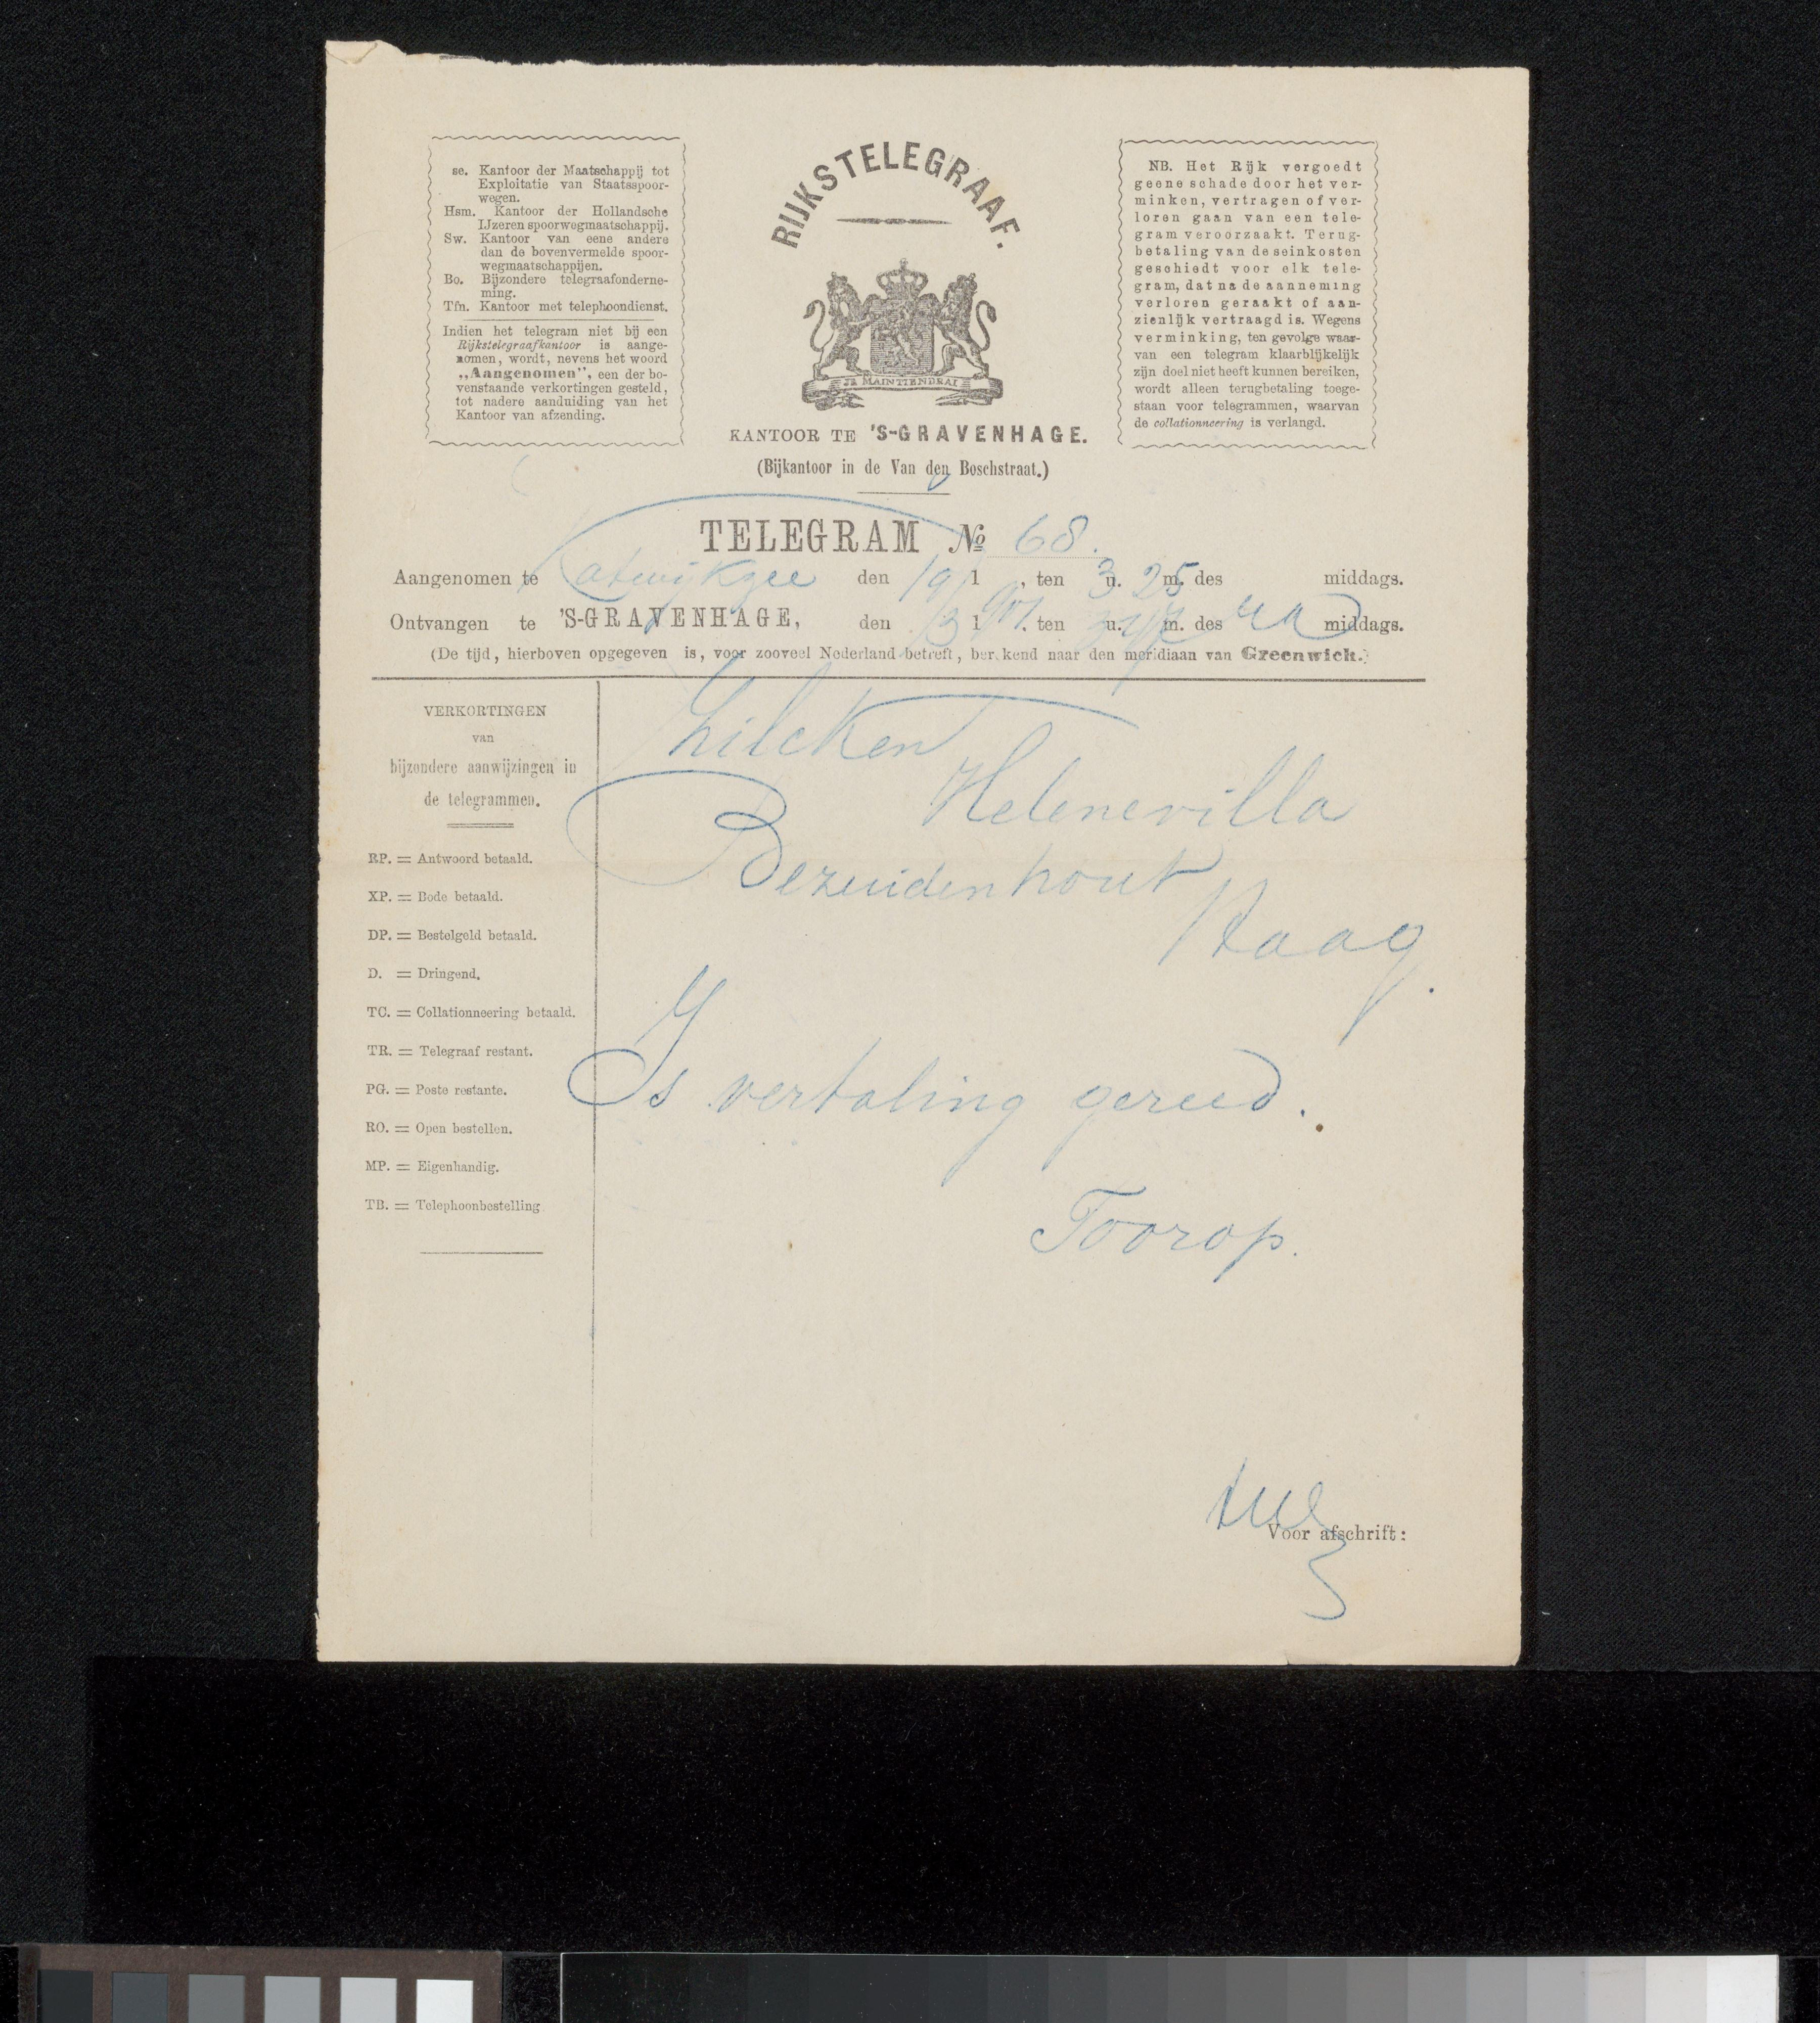 se. Kantoor der Maatschappij tot
Exploitatie van Staatsspoor-
wegen.
Hsm. Kantoor der Hollandsche
IJzeren spoorwegmaatschappij.
Sw. Kantoor van eene andere
dan de bovenvermelde spoor-
wegmaatschappijen.
Bo. Bijzondere telegraafonderne-
ming.
Tfn. Kantoor met telephoondienst.
Indien het telegram niet bij een
Rijkstelegraafkantoor is aange-
nomen, wordt, nevens het woord
„Aangenomen”, een der bo-
venstaande verkortingen gesteld,
tot nadere aanduiding van het
Kantoor van afzending.
RIJKSTELEGRAAF.
JE MAINTIENDRAI
KANTOOR TE 'S-GRAVENHAGE.
(Bijkantoor in de Van den Boschstraat.)
NB. Het Rijk vergoedt
geene schade door het ver-
minken, vertragen of ver-
loren gaan van een tele-
gram veroorzaakt. Terug-
betaling van de seinkosten
geschiedt voor elk tele-
gram, dat na de aanneming
verloren geraakt of aan-
zienlijk vertraagd is. Wegens
verminking, ten gevolge waar-
van een telegram klaarblijkelijk
zijn doel niet heeft kunnen bereiken,
wordt alleen terugbetaling toege-
staan voor telegrammen, waarvan
de collationneering is verlangd.
TELEGRAM No 68.
Aangenomen te Katwijkzee den 19/ 1 , ten 3 u. 25 m. des middags.
Ontvangen te 'S-GRAVENHAGE, den /3 1901. ten u. m. des na middags.
(De tijd, hierboven opgegeven is, voor zooveel Nederland betreft, berekend naar den meridiaan van Greenwich.)
VERKORTINGEN
van
bijzondere aanwijzingen in
de telegrammen.
RP. = Antwoord betaald.
XP. = Bode betaald.
DP. = Bestelgeld betaald.
D. = Dringend.
TC. = Collationneering betaald.
TR. = Telegraaf restant.
PG. = Poste restante.
RO. = Open bestellen.
MP. = Eigenhandig.
TB. = Telephoonbestelling
Zilcken
Helenevilla
Bezuidenhout
Haag.
Is vertaling gereed.
Toorop.
Voor afschrift: